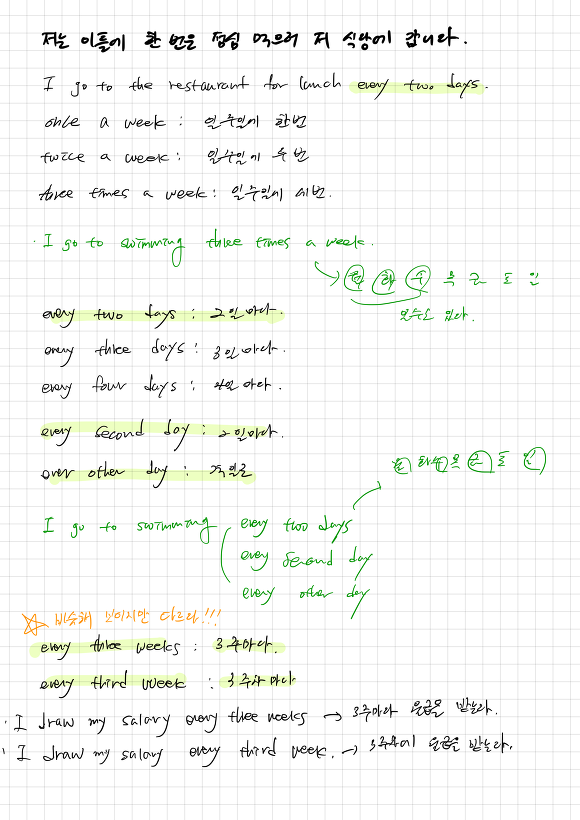 저는 이틀에 한 번은 점심 먹으러 저 식당에 갑니다.
I go to the restaurant for lunch every two days.
once a week : 일주일에 한번
twice a week : 일주일에 두 번
three times a week : 일주일에 세번.
· I go to swimming three times a week.
월 화 수 목 금 토 일
every two days : 2일마다.
every three days : 3일마다.
every four days : 4일마다.
every second day : 2일마다.
over other day : 격일로
월 화 수 목 금 토 일
I go to swimming every two days
every second day
every other day
☆ 비슷해 보이지만 다르다!!!
every three weeks : 3주마다.
every third week : 3주차마다
· I draw my salary every three weeks → 3주마다 월급을 받는다.
· I draw my salary every third week. → 3주차에 월급을 받는다.